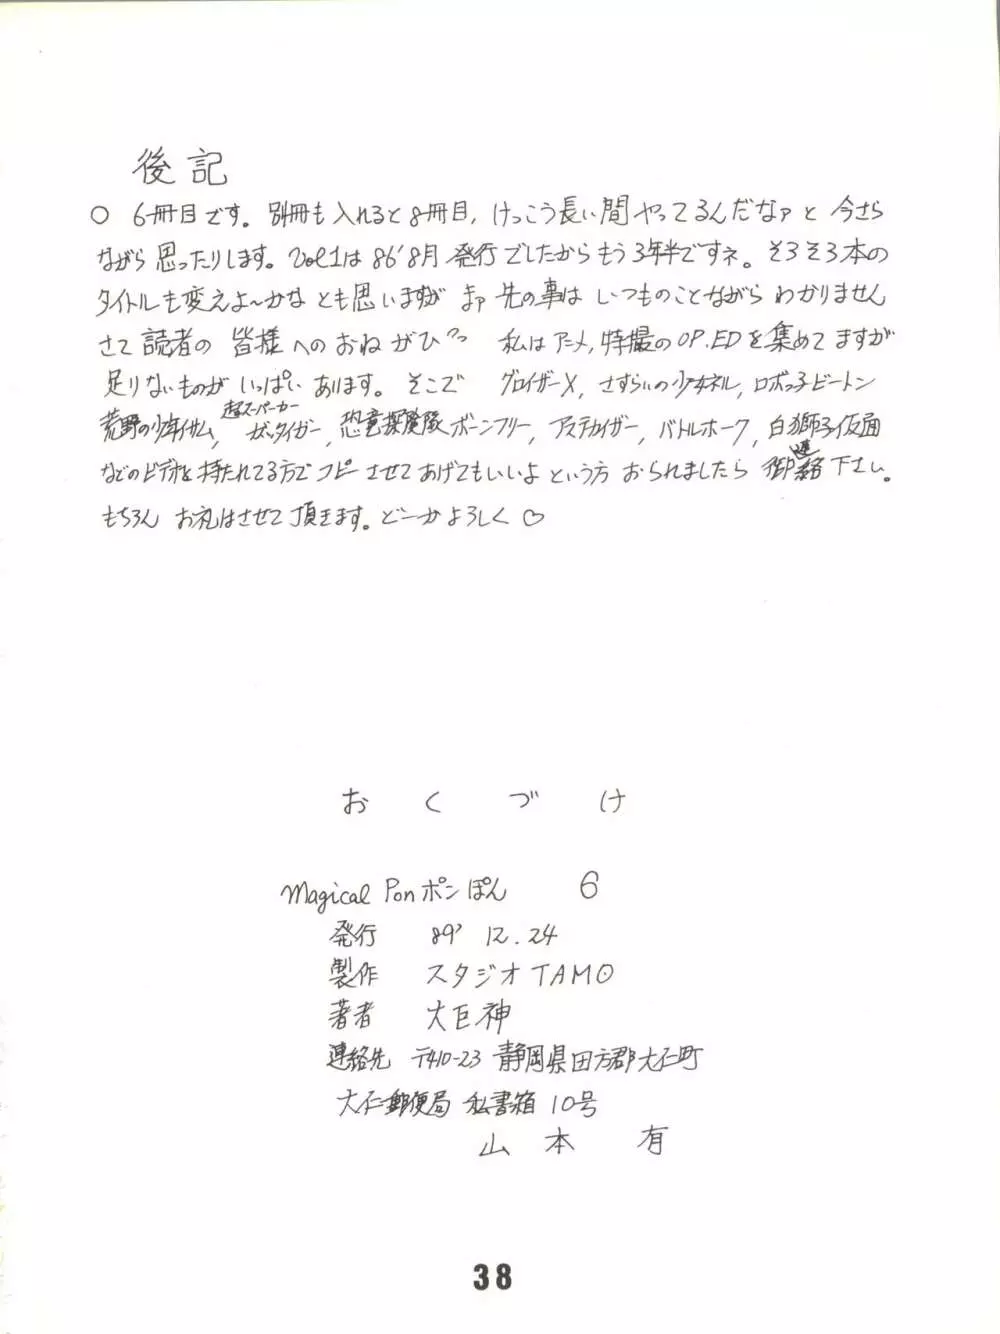 後記
○ 6冊目です。別冊も入れると8冊目，けっこう長い間やってるんだなァと今さら
ながら思ったりします。Vol1は86'8月発行でしたからもう3年半ですネ。そろそろ本の
タイトルも変えよ〜かなとも思いますが まァ先の事はいつものことながらわかりません
さて読者の皆様へのおねがひ 私はアニメ，特撮のOP.EDを集めてますが
足りないものがいっぱいあります。そこで グロイザーX，さすらいの少女ネル，ロボっ子ビートン
荒野の少年イサム，超スーパーカーガッタイガー，恐竜探険隊ボーンフリー，アステカイザー，バトルホーク，白獅子仮面
などのビデオを持たれてる方でコピーさせてあげてもいいよという方おられましたら御連絡下さい。
もちろんお礼はさせて頂きます。ど〜かよろしく♡
おくづけ
Magical Ponポンぽん 6
発行 89' 12.24
製作 スタジオTAMO
著者 大巨神
連絡先 〒410-23 静岡県田方郡大仁町
大仁郵便局 私書箱10号
山本 有
38